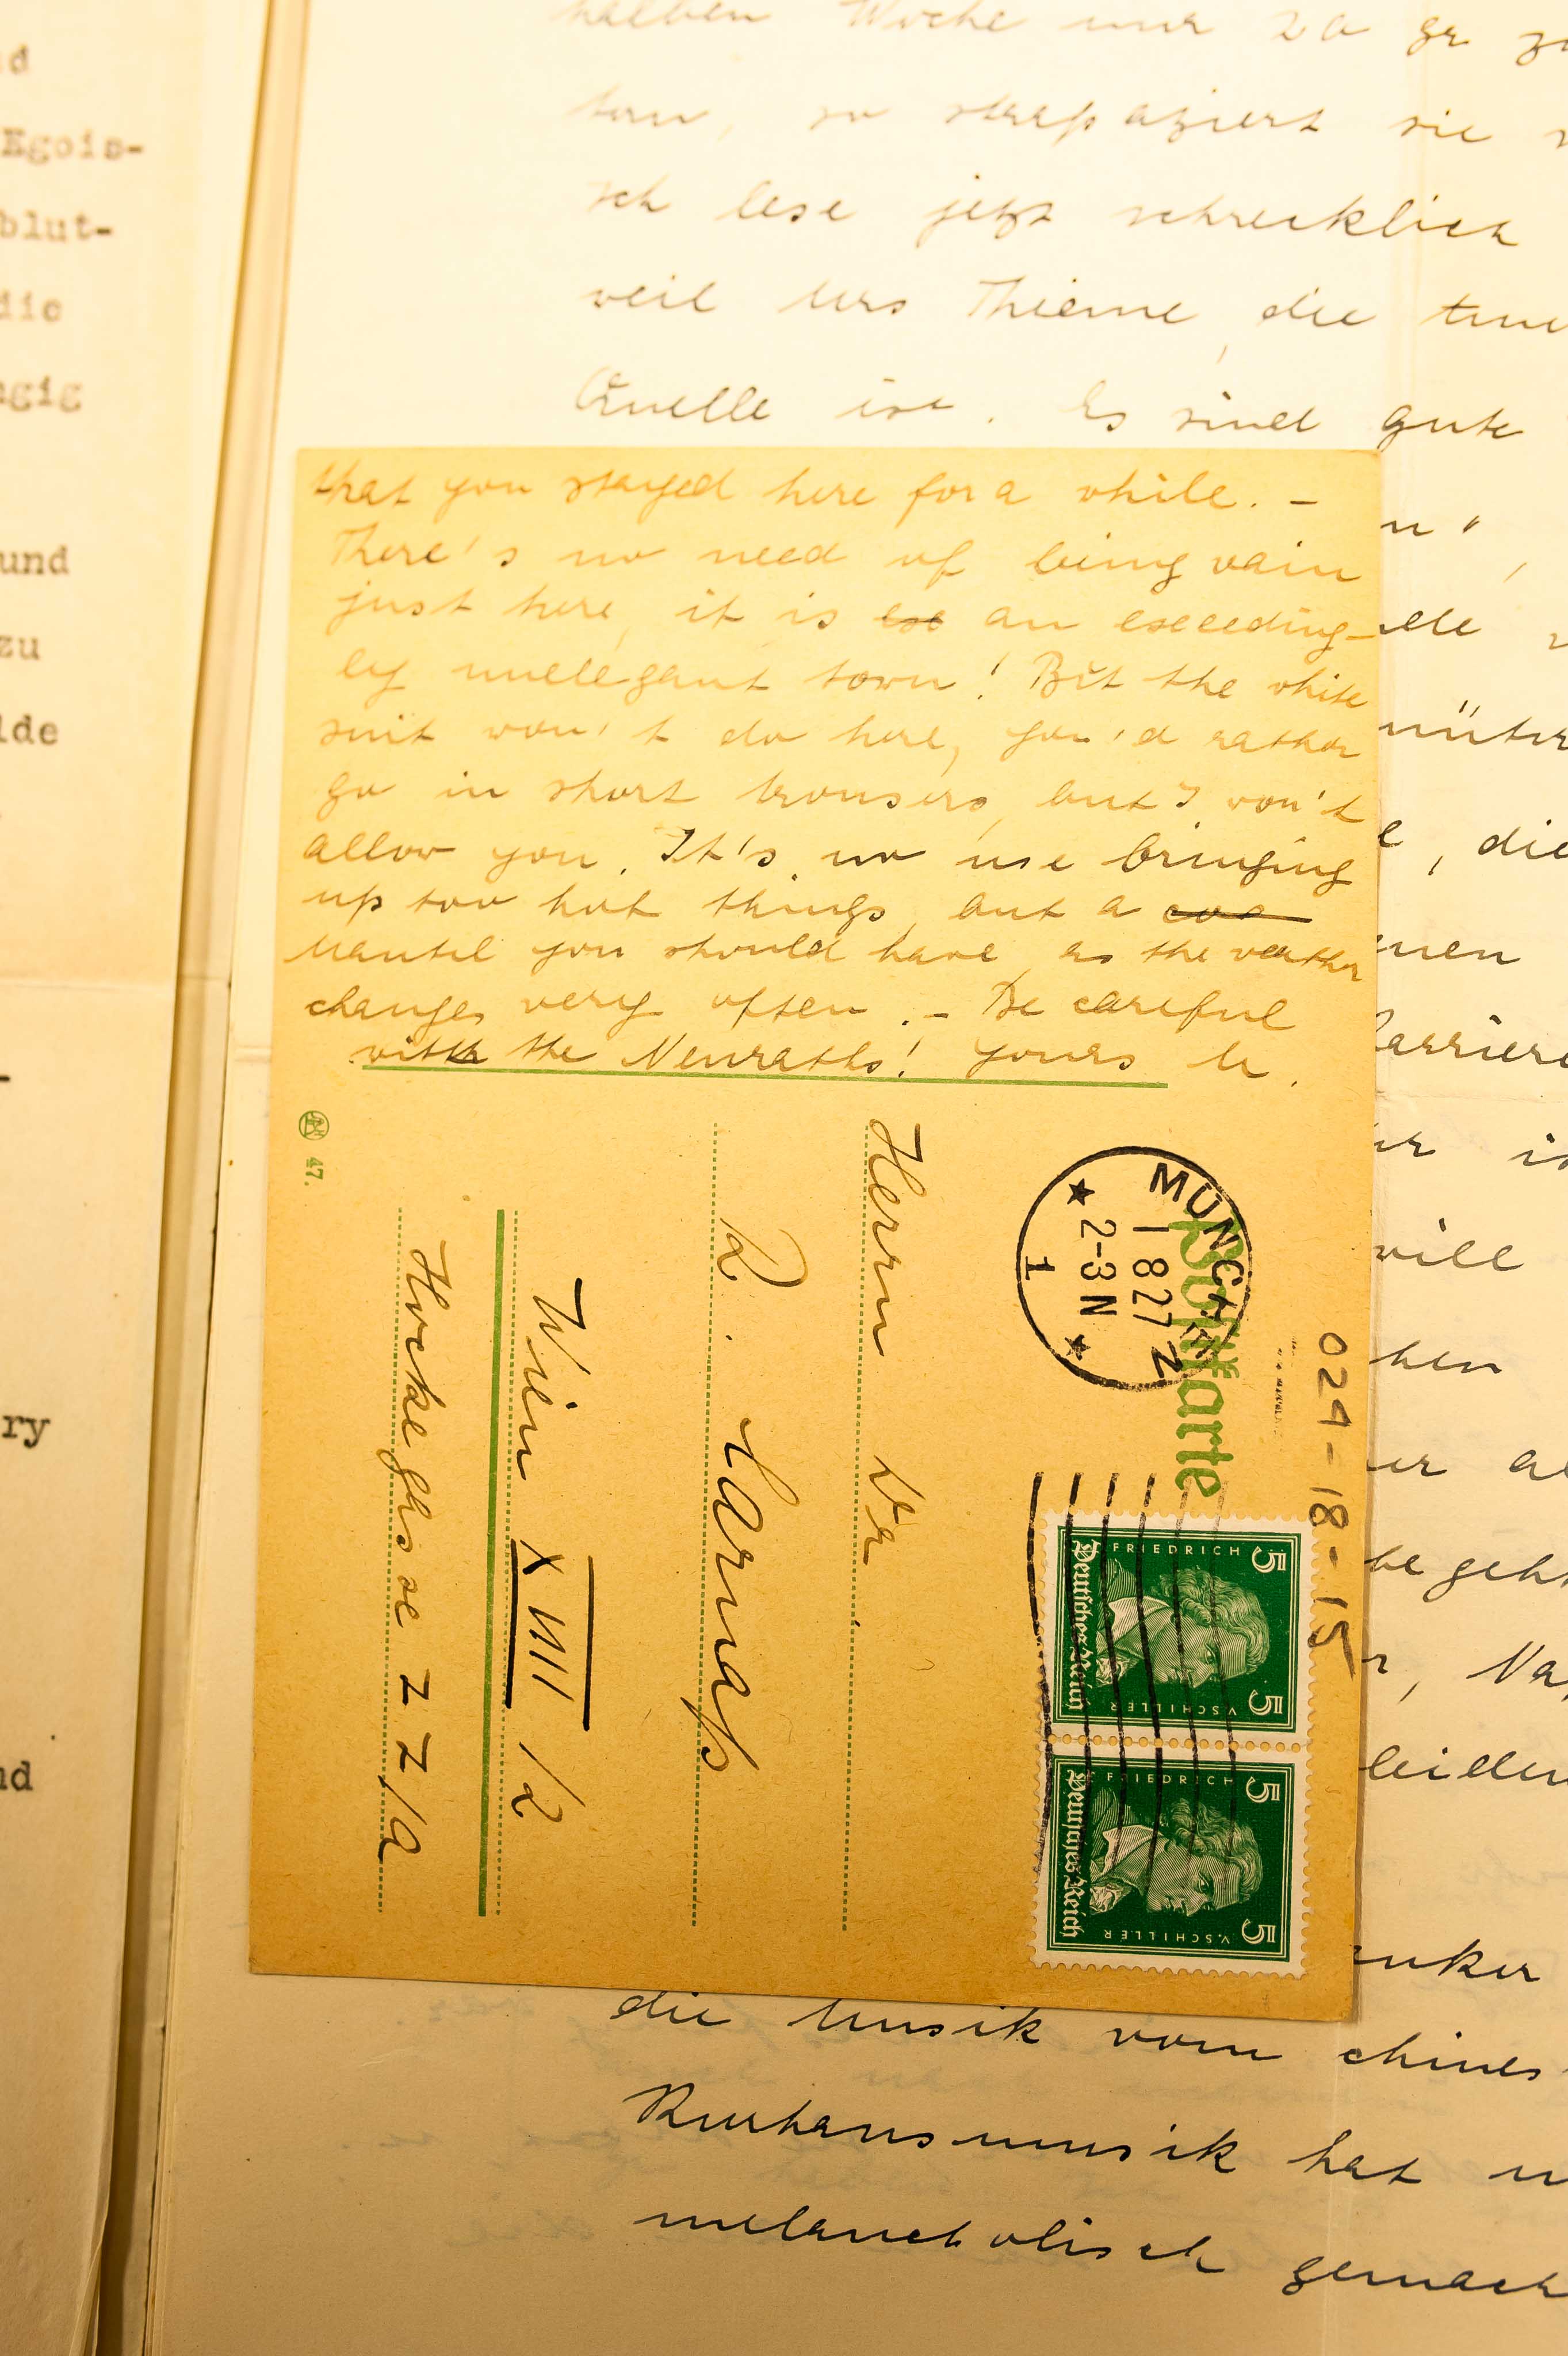 d
Egois-
blut-
die
ngig
und
zu
lde
ry
nd
halben Woche nur 20 gr zu
tun, so strapaziert sie
Ich lese jetzt schrecklich
weil Urs Thieme, die
Quelle ist. Es sind gute
n"
elle
l, die
nen
Karriere
ir is
will
hen
er al
begeh
r, Na
leiden
nker
die Musik vom chines
Kurhausmusik hat
melancholisch gemach
that you stayed here for a while. –
There's no need of being vain
just here, it is an exceeding-
ly unelegant town! But the white
suit won't do here, you'd rather
go in short trousers, but I won't
allow you. It's no use bringing
up too hot things, but a
Mantel you should have, as the weather
changes very often. – Be careful
with the Neuraths! Yours M.
47.
Postkarte
MÜNCHEN 2
1 8 27
2-3 N
1
024-18-15
5 FRIEDRICH V. SCHILLER 5
Deutsches Reich
5 FRIEDRICH V. SCHILLER 5
Deutsches Reich
Herrn Dr.
R. Carnap
Wien XIII/2
Hockeghsse 77/a